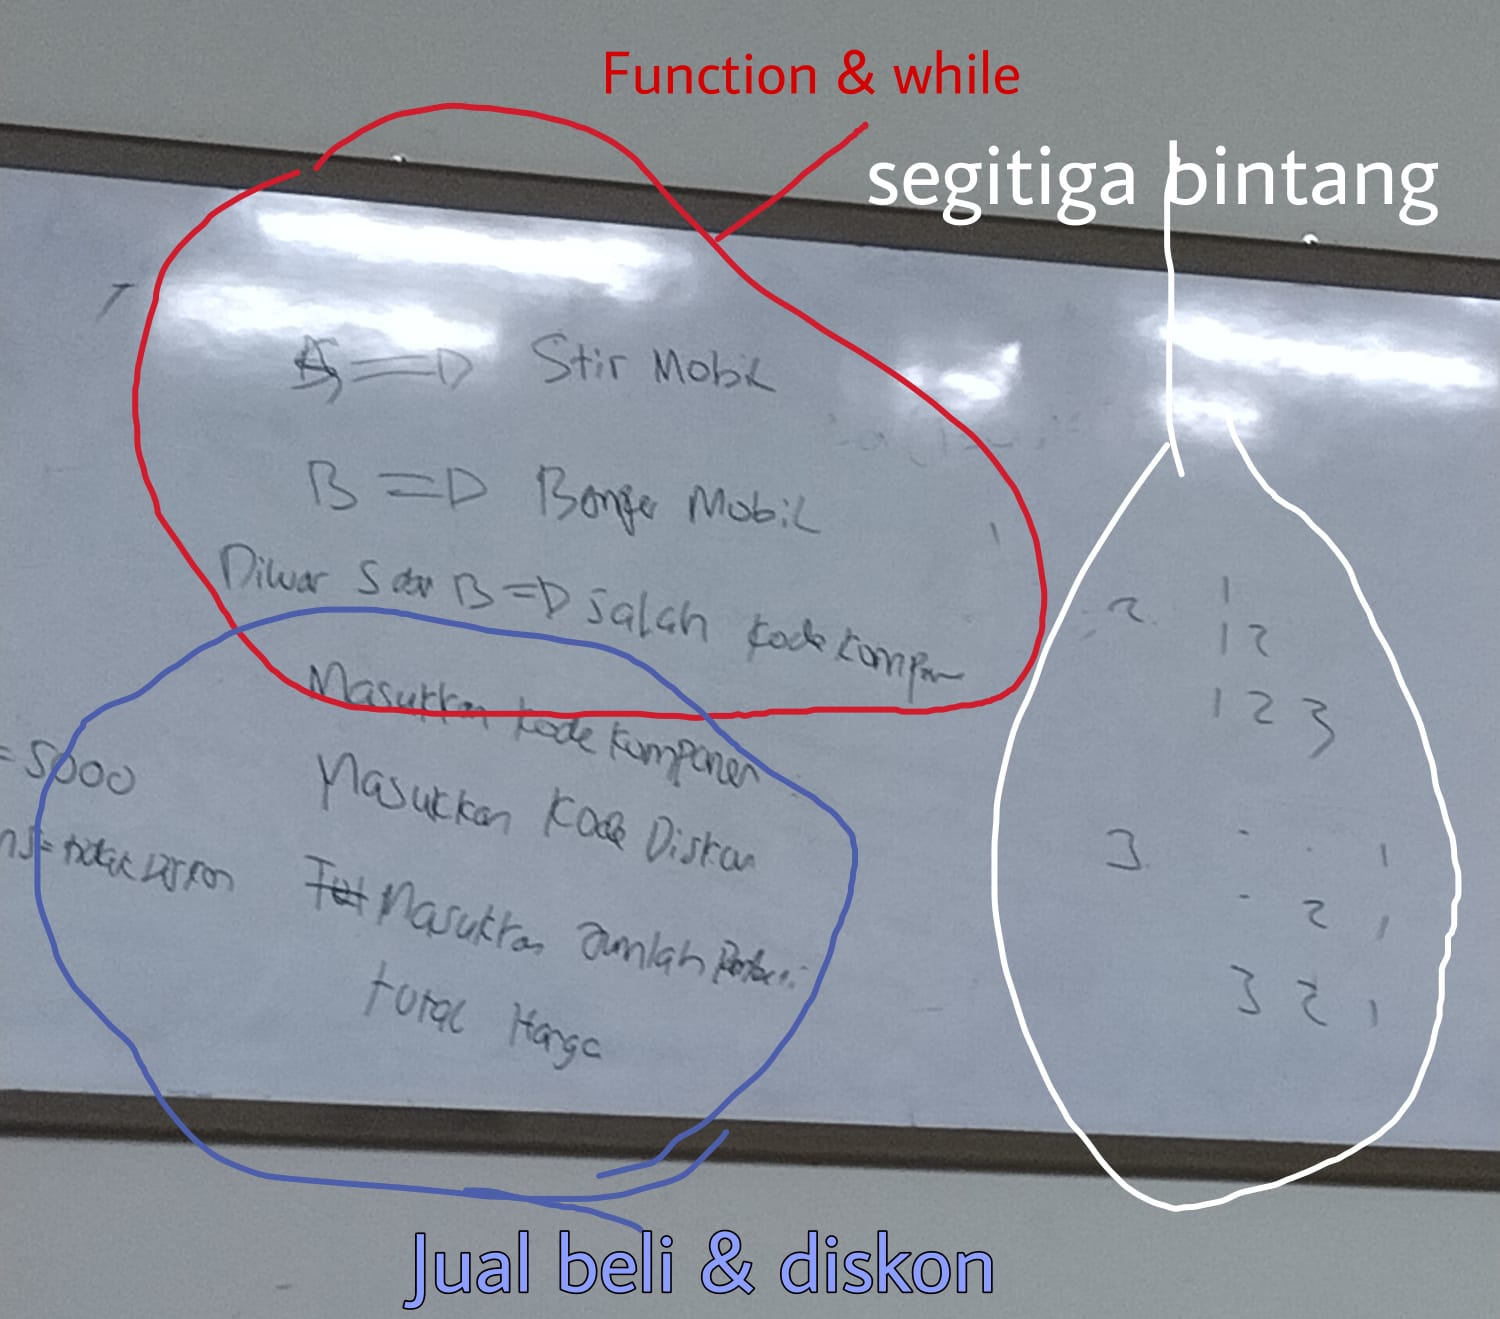 Function & while
segitiga bintang
S => Stir Mobil
B => Bamper Mobil
Diluar S dan B => Salah kode kompon
Masukkan kode komponen
= 5000
Masukkan Kode Diskon
= tidak diskon
Masukkan Jumlah
total Harga
2. 1
1 2
1 2 3
3. - . 1
- 2 1
3 2 1
Jual beli & diskon